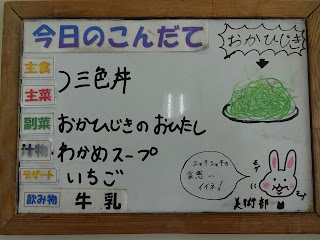 今日のこんだて
おかひじき
主食
主菜
三色丼
副菜 おかひじきのおひたし
汁物 わかめスープ
デザート いちご
飲み物 牛乳
シャキシャキの
食感が
イイネ!
美術部